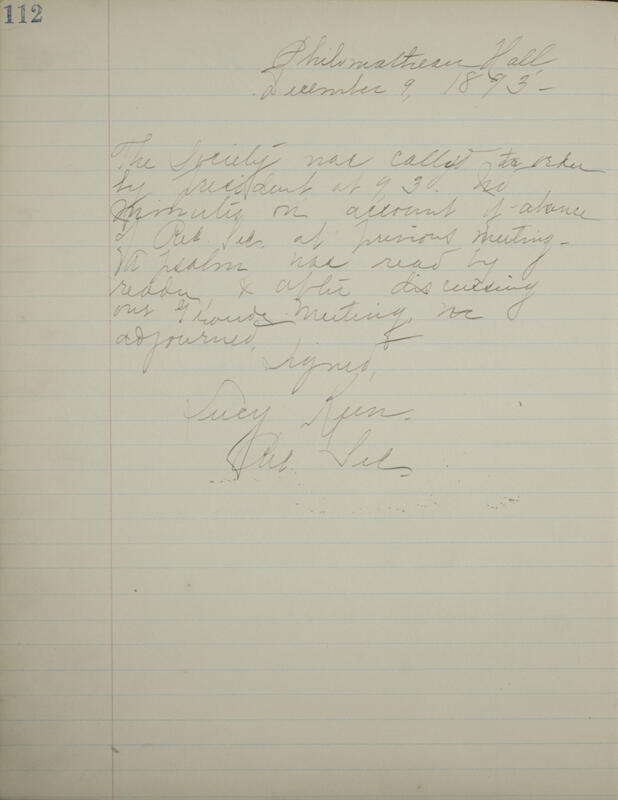 112
Philomathean Hall
December 9, 1893-
The Society was called to order
by president at 9 30. No
minutes on account of absence
of Rec. Sec. at previous meeting-
A psalm was read by
reader & after discussing
our Meeting, we
adjourned.
Signed,
Lucy
Rec Sec.